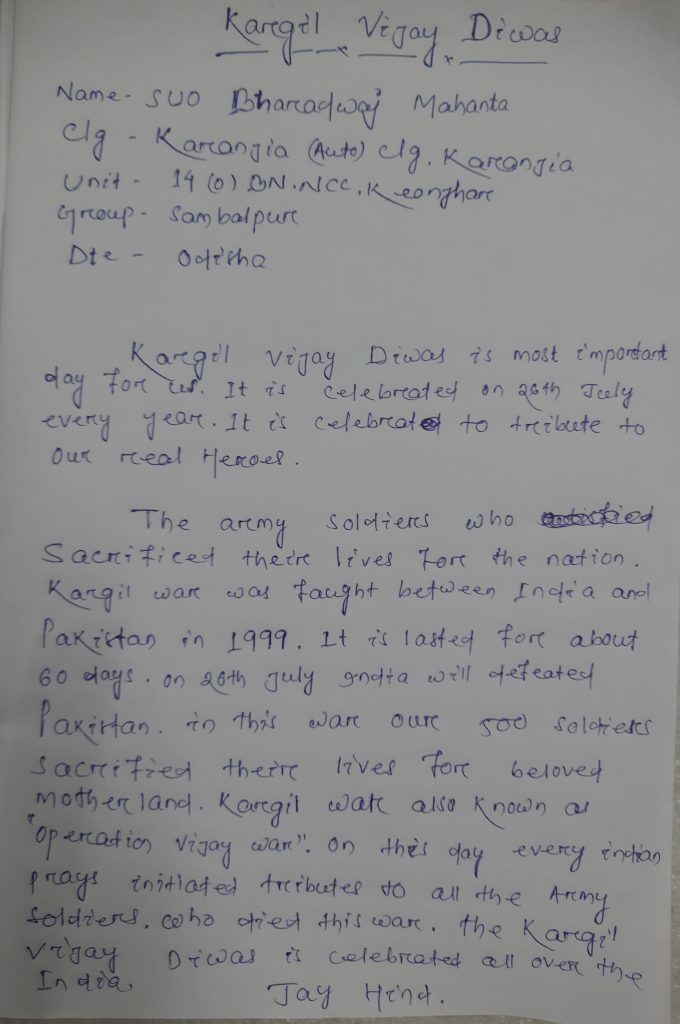 Kargil Vijay Diwas
Name - SUO Bharadwaj Mahanta
Clg - Karanjia (Auto) clg. Karanjia
Unit - 14 (O) BN. NCC, Keonghar
Group - Sambalpur
Dte - Odisha
Kargil Vijay Diwas is most important
day for us. It is celebrated on 26th July
every year. It is celebrated to tribute to
our real Heroes.
The army soldiers who
Sacrificed their lives for the nation.
Kargil war was faught between India and
Pakistan in 1999. It is lasted for about
60 days. on 26th July India will defeated
Pakistan. in this war our 500 soldiers
sacrified their lives for beloved
motherland. Kargil war also known as
"operation vijay war". On this day every indian
prays initiated tributes to all the Army
soldiers. who died this war. the Kargil
Vijay Diwas is celebrated all over the
India.
Jay Hind.